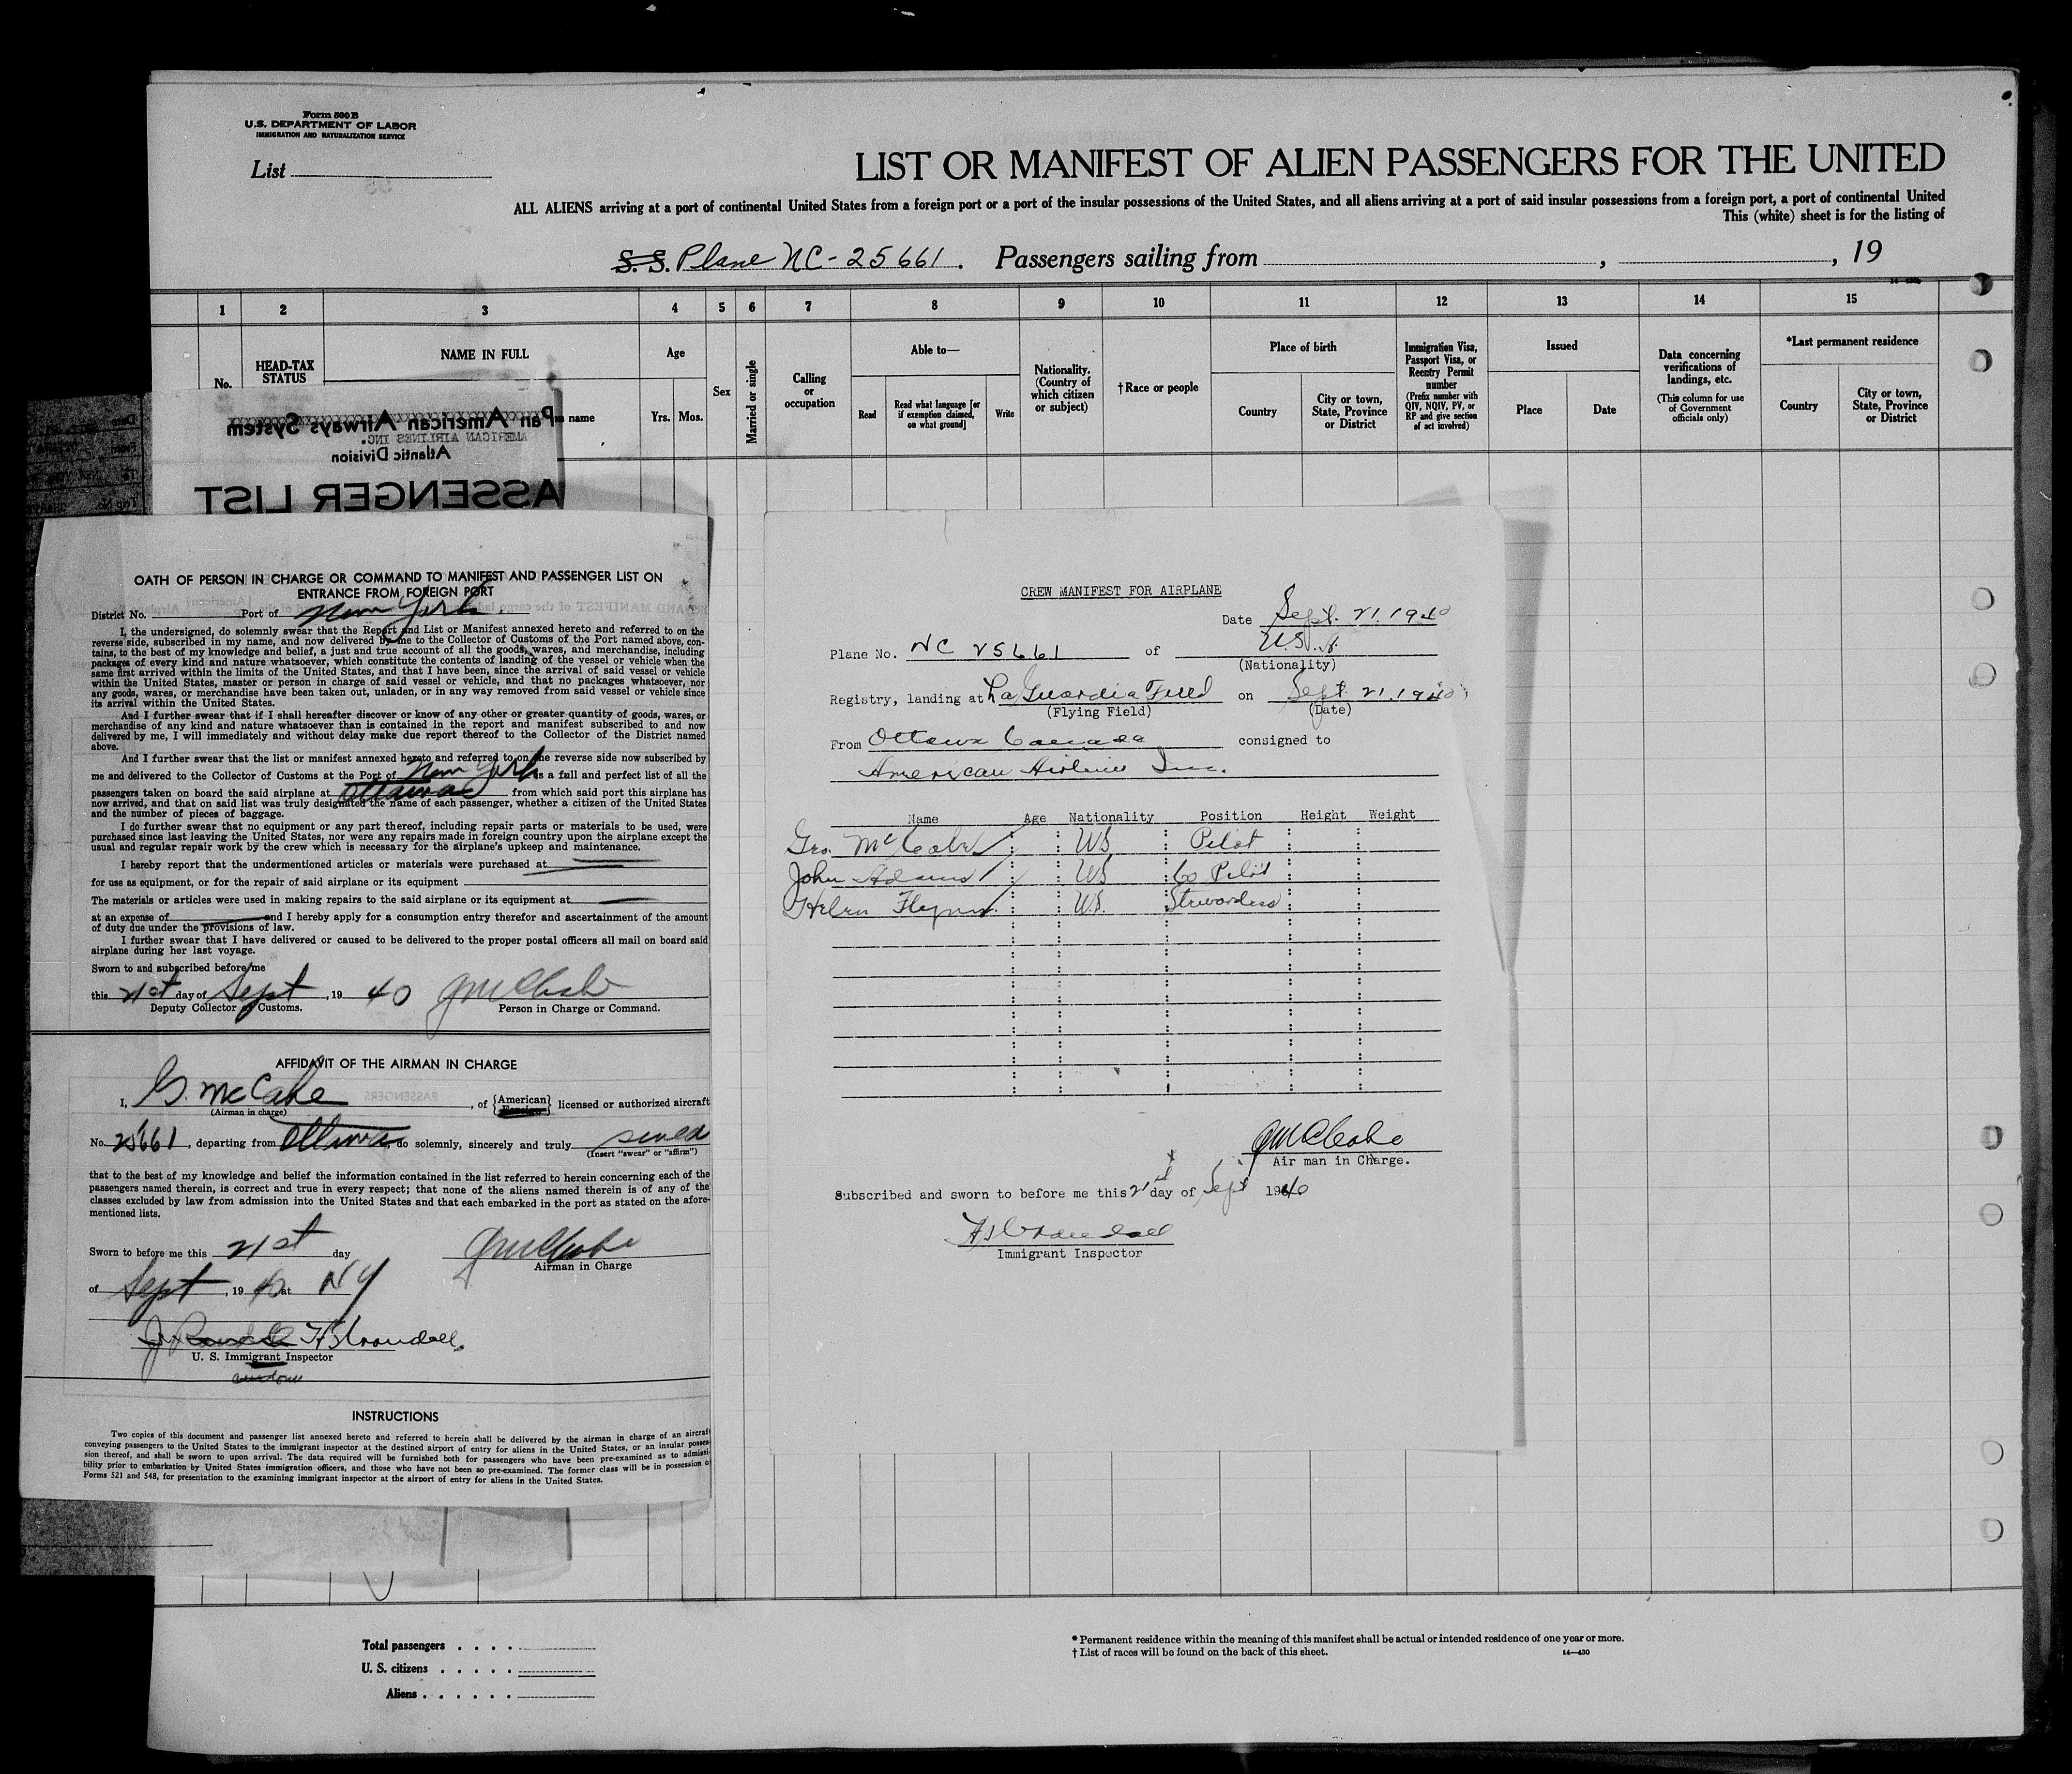 Form 500 B
U.S. DEPARTMENT OF LABOR
IMMIGRATION AND NATURALIZATION SERVICE
List
LIST OR MANIFEST OF ALIEN PASSENGERS FOR THE UNITED
ALL ALIENS arriving at a port of continental United States from a foreign port or a port of the insular possessions of the United States, and all aliens arriving at a port of said insular possessions from a foreign port, a port of continental United
This (white) sheet is for the listing of
S. S. Plane NC-25661. Passengers sailing from , , 19
1 2 3 4 5 6 7 8 9 10 11 12 13 14 15
No.
HEAD-TAX STATUS
NAME IN FULL
name
Age
Yrs. Mos.
Sex
Married or single
Calling or occupation
Able to—
Read
Read what language [or if exemption claimed, on what ground]
Write
Nationality. (Country of which citizen or subject)
†Race or people
Place of birth
Country
City or town, State, Province or District
Immigration Visa, Passport Visa, or Reentry Permit number
(Prefix number with QIV, NQIV, PV, or RP and give section of act involved)
Issued
Place
Date
Data concerning verifications of landings, etc.
(This column for use of Government officials only)
*Last permanent residence
Country
City or town, State, Province or District
Pan American Airways System
AMERICAN AIRLINES INC.
Atlantic Division
ASSENGER LIST
OATH OF PERSON IN CHARGE OR COMMAND TO MANIFEST AND PASSENGER LIST ON
ENTRANCE FROM FOREIGN PORT
District No. Port of New York.
I, the undersigned, do solemnly swear that the Report and List or Manifest annexed hereto and referred to on the
reverse side, subscribed in my name, and now delivered by me to the Collector of Customs of the Port named above, con-
tains, to the best of my knowledge and belief, a just and true account of all the goods, wares, and merchandise, including
packages of every kind and nature whatsoever, which constitute the contents of landing of the vessel or vehicle when the
same first arrived within the limits of the United States, and that I have been, since the arrival of said vessel or vehicle
within the United States, master or person in charge of said vessel or vehicle, and that no packages whatsoever, nor
any goods, wares, or merchandise have been taken out, unladen, or in any way removed from said vessel or vehicle since
its arrival within the United States.
And I further swear that if I shall hereafter discover or know of any other or greater quantity of goods, wares, or
merchandise of any kind and nature whatsoever than is contained in the report and manifest subscribed to and now
delivered by me, I will immediately and without delay make due report thereof to the Collector of the District named
above.
And I further swear that the list or manifest annexed hereto and referred to on the reverse side now subscribed by
me and delivered to the Collector of Customs at the Port of New York is a full and perfect list of all the
passengers taken on board the said airplane at Ottawa from which said port this airplane has
now arrived, and that on said list was truly designated the name of each passenger, whether a citizen of the United States
and the number of pieces of baggage.
I do further swear that no equipment or any part thereof, including repair parts or materials to be used, were
purchased since last leaving the United States, nor were any repairs made in foreign country upon the airplane except the
usual and regular repair work by the crew which is necessary for the airplane's upkeep and maintenance.
I hereby report that the undermentioned articles or materials were purchased at
for use as equipment, or for the repair of said airplane or its equipment
The materials or articles were used in making repairs to the said airplane or its equipment at
at an expense of and I hereby apply for a consumption entry therefor and ascertainment of the amount
of duty due under the provisions of law.
I further swear that I have delivered or caused to be delivered to the proper postal officers all mail on board said
airplane during her last voyage.
Sworn to and subscribed before me
this 21st day of Sept, 19 40 GMcCabe
Deputy Collector of Customs. Person in Charge or Command.
AFFIDAVIT OF THE AIRMAN IN CHARGE
I, G. McCabe, of {American Foreign} licensed or authorized aircraft
(Airman in charge)
No. 25661, departing from Ottawa do solemnly, sincerely and truly
(Insert "swear" or "affirm")
that to the best of my knowledge and belief the information contained in the list referred to herein concerning each of the
passengers named therein, is correct and true in every respect; that none of the aliens named therein is of any of the
classes excluded by law from admission into the United States and that each embarked in the port as stated on the afore-
mentioned lists.
Sworn to before me this 21st day GMcCabe
Airman in Charge
of Sept, 19 40 at NY
HSCrandall
U. S. Immigrant Inspector
INSTRUCTIONS
Two copies of this document and passenger list annexed hereto and referred to herein shall be delivered by the airman in charge of an aircraft
conveying passengers to the United States to the immigrant inspector at the destined airport of entry for aliens in the United States, or an insular posses-
sion thereof, and shall be sworn to upon arrival. The data required will be furnished both for passengers who have been pre-examined as to admissi-
bility prior to embarkation by United States immigration officers, and those who have not been so pre-examined. The former class will be in possession o
Forms 521 and 548, for presentation to the examining immigrant inspector at the airport of entry for aliens in the United States.
CREW MANIFEST FOR AIRPLANE
Date Sept. 21. 1940
Plane No. NC 25661 of U.S.A.
(Nationality)
Registry, landing at La Guardia Field on Sept. 21. 1940
(Flying Field) (Date)
From Ottawa Canada consigned to
American Airlines Inc.
Name Age Nationality Position Height Weight
Geo. McCabe US Pilot
John Adams US Co Pilot
Helen Flynn U.S. Stewardess
GMcCabe
Air man in Charge.
Subscribed and sworn to before me this 21st day of Sept 1940
HSCrandall
Immigrant Inspector
Total passengers
U. S. citizens
Aliens
* Permanent residence within the meaning of this manifest shall be actual or intended residence of one year or more.
† List of races will be found on the back of this sheet.
14—430